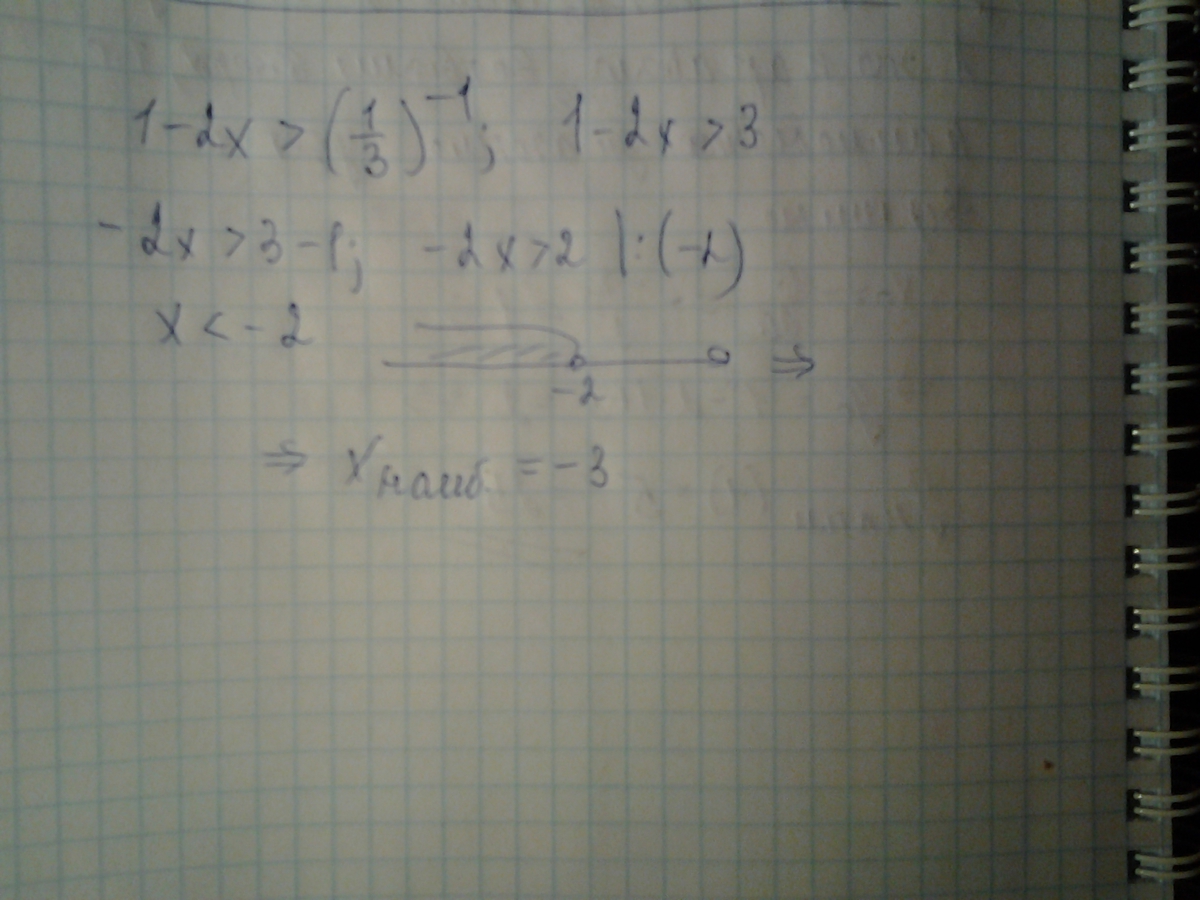 1-2x > (1/3)^-1; 1-2x>3
-2x>3-1; -2x>2 |:(-2)
x<-2
-2 ⇒
⇒ xнаиб. = -3